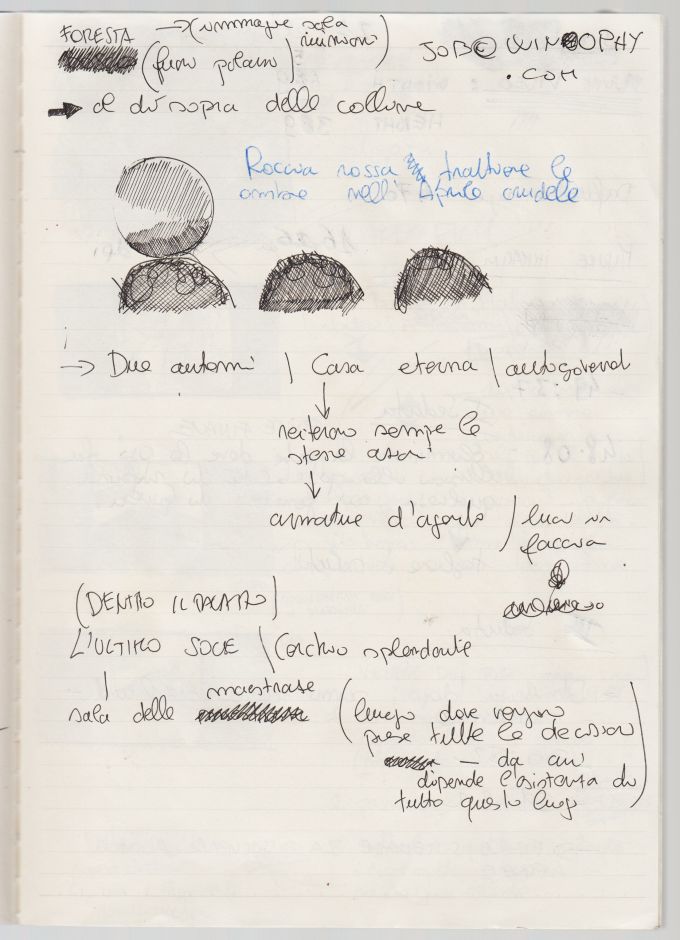 FORESTA → (immagine sala riunioni)
(fuori palazzo)
JOB@WIN OPHY
.COM
→ al di sopra delle colline
Roccia rossa trattiene le
ombre nell' Aprile crudele
→ Due autunni | Casa eterna | autogovernol
reiterano sempre le
stesse azioni
armature d'agosto / luci in
faccia
(DENTRO IL PALAZZO)
L'ULTIMO SOLE | Cerchio splendente
sala delle maestrase
(luogo dove vengono
prese tutte le decisioni
— da cui
dipende l'esistenza di
tutto questo luogo)